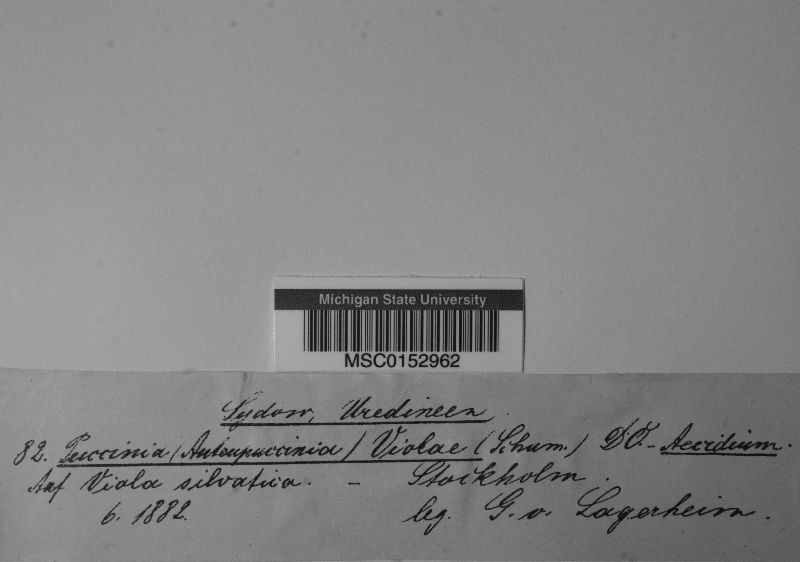 Michigan State University
MSC0152962
Sydow, Uredineen.
82. Puccinia (Auteupuccinia) Violae (Schum.) DC. - Aecidium.
Auf Viola silvatica. - Stockholm.
6. 1882. leg. G. v. Lagerheim.